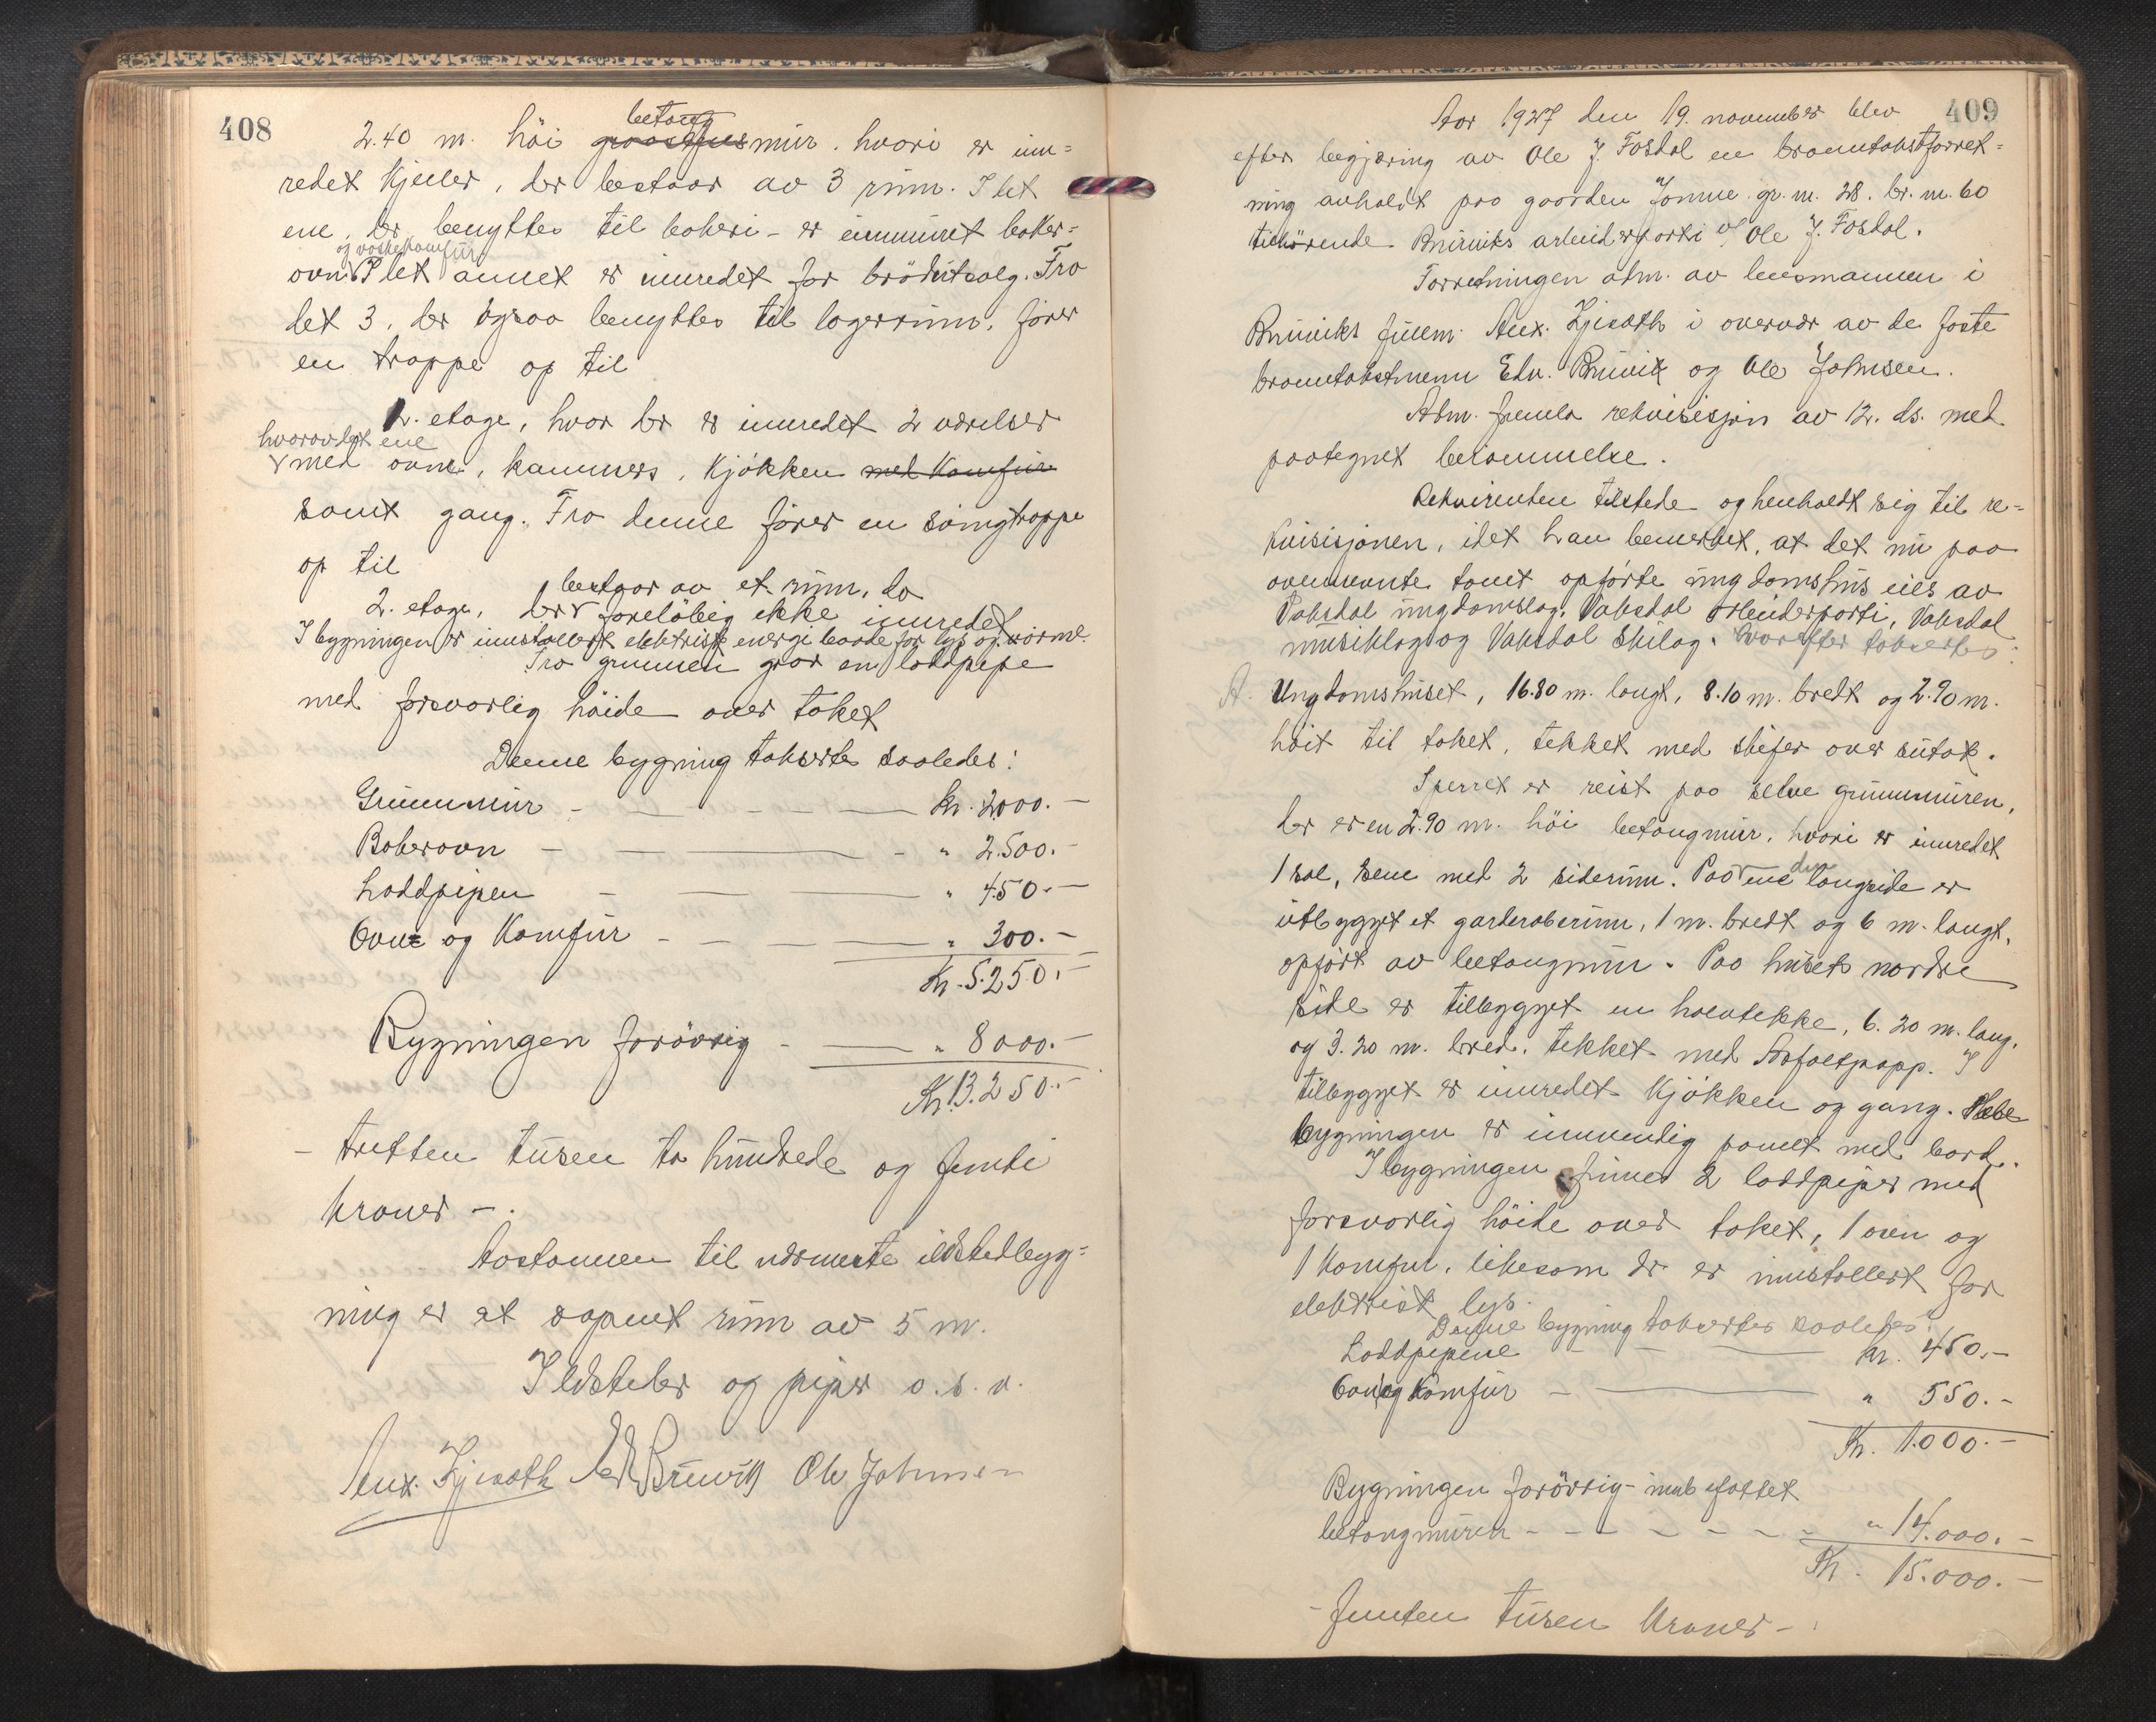 408
2.40 m. höi betong graasteins mur. hvori er inn=
redet kjeller, der bestaar av 3 rum. I det
ene, der benyttes til bakeri - er innmuret baker=
og vaskekomfur
ovn. I det annet er innredet for brödutsalg. Fra
det 3. der ogsaa benyttes til lagerrum, förer
en trappe op til
1. etage, hvor der er innredet 2 værelser
hvorav det ene
med ovn, kammers, kjökken med Komfur
samt gang. Fra denne förer en svingtrappe
op til
bestaar av et rum, da
2. etage, der foreløbig ikke innredet
I bygningen er innstallert elektrisk energi baade for lys og varme.
Fra grunnen graar en loddpipe
med forsvarlig höide over taket
Denne bygning taksertes saaledes:
Grunnmur - kr. 2000.-
Bakerovn - " 2.500.-
Loddpipen - " 450.-
Ovn og Komfur - " 300.-
Kr. 5.250.-
Bygningen forövrig - " 8000.-
Kr. 13.250.-
- tretten tusen to hundrede og femti
kroner -.
Avstannen til nærmeste ildstedbygg=
ning er et aapent rum av 5 m.
Ildsteder og piper o.s.v.
Anx. Gjerath Edv Bruvik Ole Johnsen
409
Aar 1927 den 19. november blev
efter begjæring av Ole J. Fosdal en branntakstforret=
ning avholdt paa gaarden Jamne gr. nr. 28. br. nr. 60
tilhörende Bruviks arbeiderparti v/ Ole J. Fosdal.
Forretningen adm. av lensmannen i
Bruviks fullm. Anx. Gjerath i overvær av de faste
branntakstmenn Edv. Bruvik og Ole Johnsen.
Adm. fremla rekvisisjon av 12. ds. med
paategnet berammelse.
Rekvirenten tilstede og henholdt sig til re=
kvisisjonen, idet han bemerket, at det nu paa
ovennevnte tomt opförte ungdomshus eies av
Vaksdal ungdomslag, Vaksdal arbeiderparti, Vaksdal
musiklag og Vaksdal Skilag. Hvorefter takserte:
A. Ungdomshuset, 16.80 m. langt, 8.10 m. bredt og 2.90 m.
höit til taket, tekket med skifer over sutak.
Sperret er reist paa selve grunnmuren,
der er en 2.90 m. höi betongmur, hvori er innredet
1 sal, scene med 2 siderum. Paa den ene langside er
utbygget et garderoberum, 1 m. bredt og 6 m. langt,
opfört av betongmur. Paa husets nordre
side er tilbygget en halvtekke, 6.20 m. lang,
og 3.20 m. bred, tekket med Asfaltpapp. I
tilbygget er innredet kjökken og gang. Hele
bygningen er innvendig panelt med bord.
I bygningen finnes 2 loddpiper med
forsvarlig höide over taket, 1 ovn og
1 Komfur, likesom der er innstallert for
elektrisk lys.
Denne bygning taksertes saaledes:
Loddpipene - kr. 450.-
Ovn og Komfur - " 550.-
Kr. 1.000.-
Bygningen forövrig - innbefattet
betongmuren - " 14.000.-
Kr. 15.000.-
- femten tusen kroner -